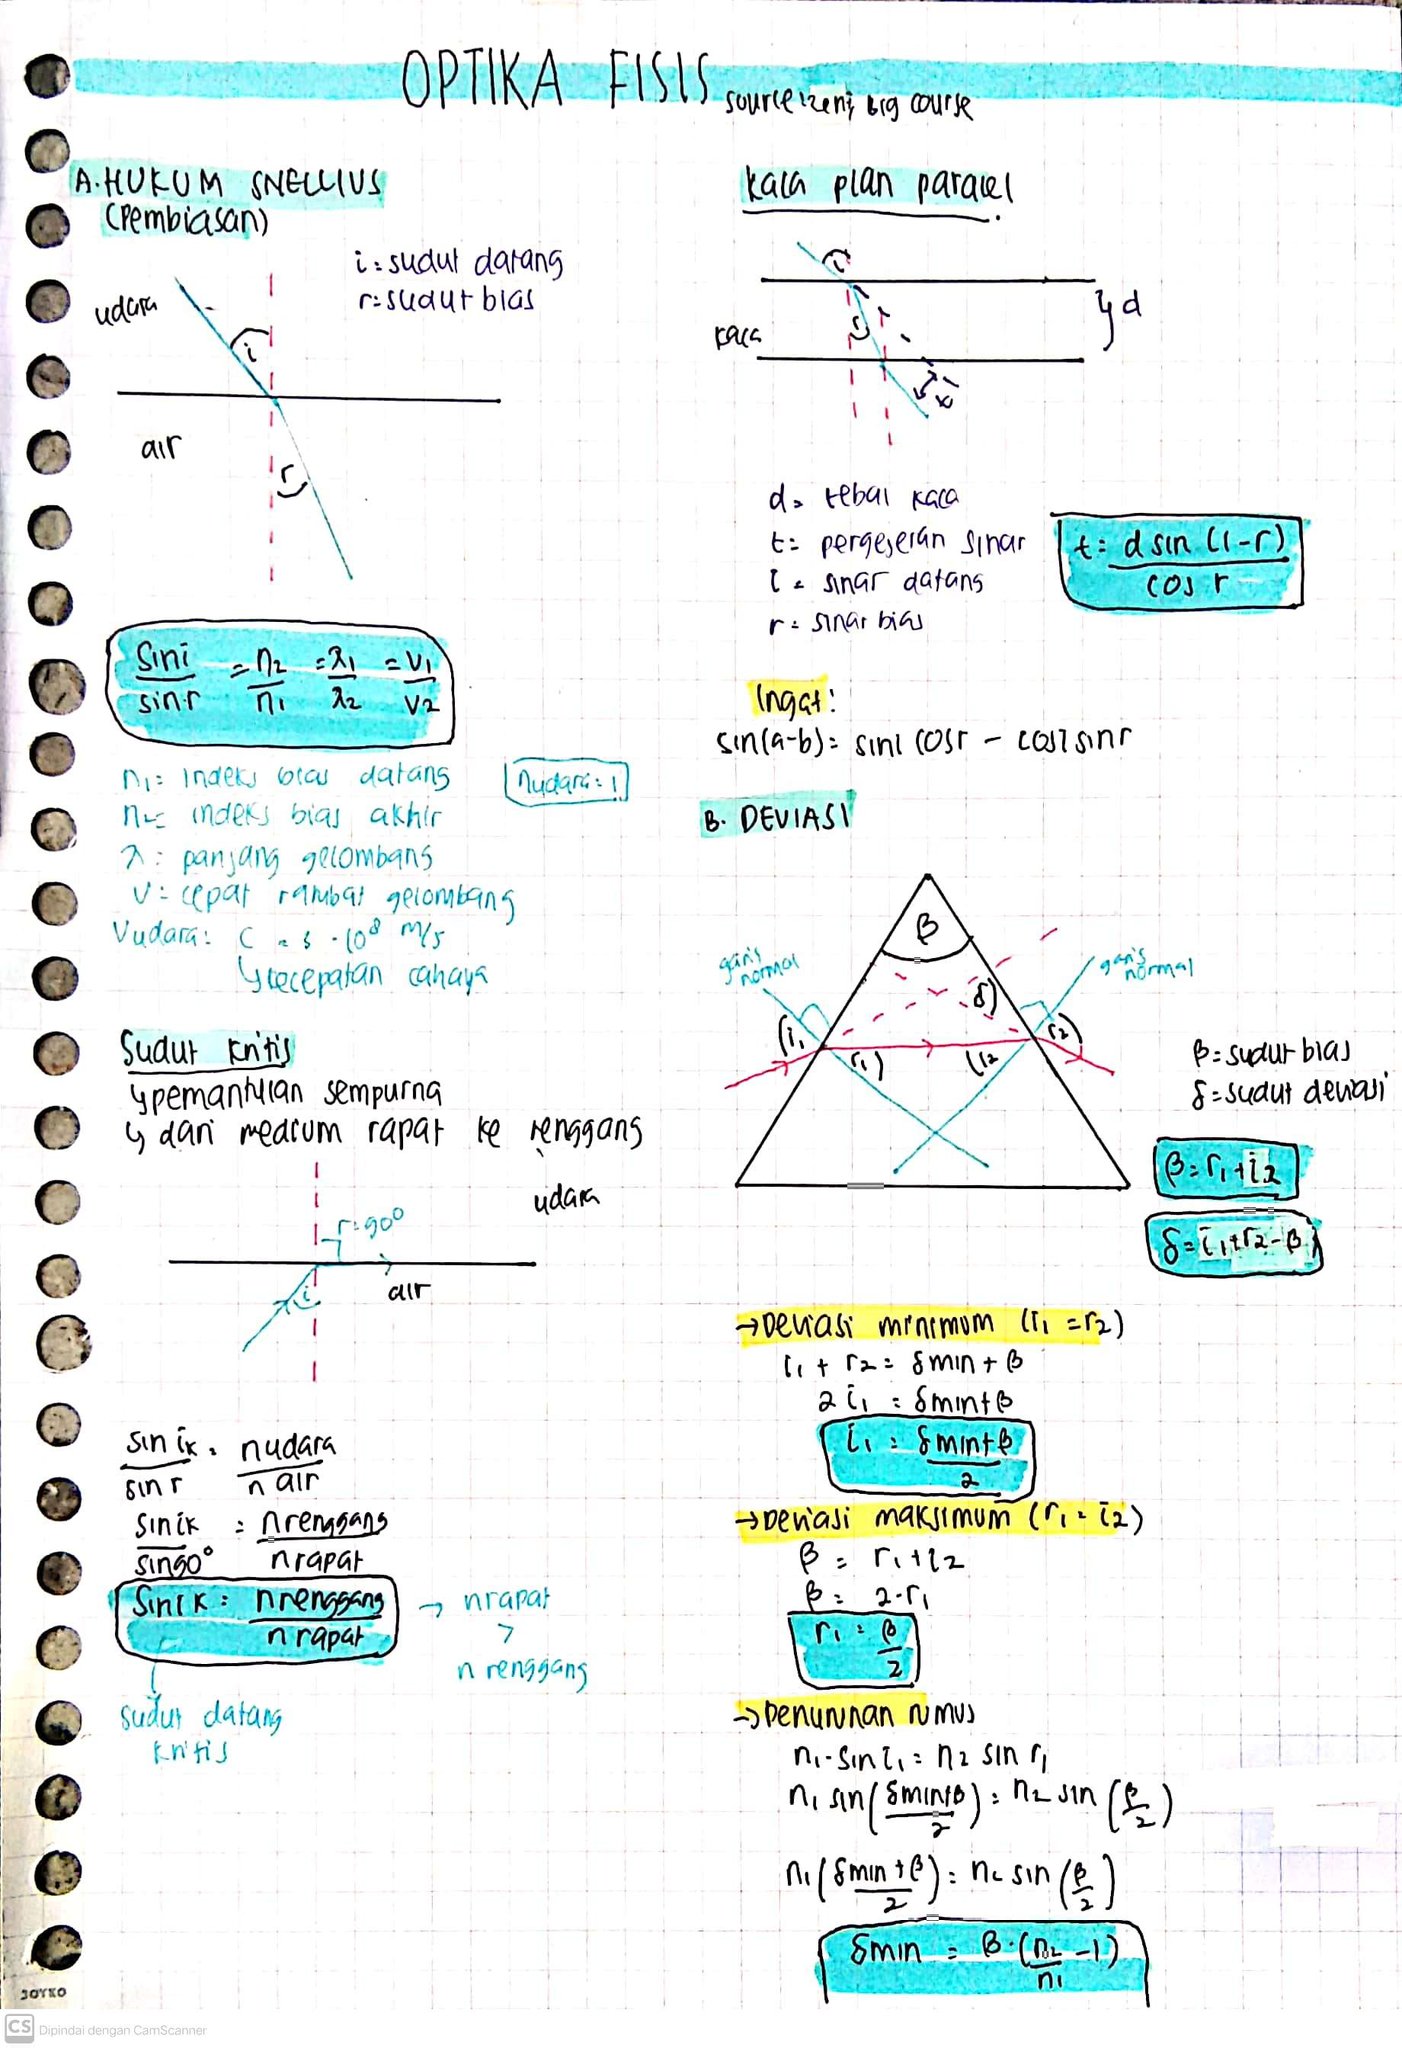 OPTIKA FISIS
source: zenius, brg course
A. HUKUM SNELLIUS
(Pembiasan)
i = sudut datang
r = sudut bias
udara
i
air
r
sin i / sin r = n2 / n1 = λ1 / λ2 = v1 / v2
n1 = indeks bias datang
n udara = 1
n2 = indeks bias akhir
λ = panjang gelombang
v = cepat rambat gelombang
Vudara: C = 3 · 10⁸ m/s
↳ kecepatan cahaya
Sudut kritis
↳ pemantulan sempurna
↳ dari medium rapat ke renggang
udara
r = 90°
air
i
sin ik / sin r = n udara / n air
sin ik / sin 90° = n renggang / n rapat
sin ik = n renggang / n rapat
→ n rapat
>
n renggang
sudut datang
kritis
kaca plan paralel
i
d
kaca
r
t
d = tebal kaca
t = pergeseran sinar
i = sinar datang
r = sinar bias
t = d sin (i - r) / cos r
Ingat:
sin(a-b) = sin i cos r - cos i sin r
B. DEVIASI
β
garis normal
garis normal
δ
i1
r1
i2
r2
β = sudut bias
δ = sudut deviasi
β = r1 + i2
δ = i1 + r2 - β
→ Deviasi minimum (i1 = r2)
i1 + r2 = δ min + β
2 i1 = δ min + β
i1 = δ min + β / 2
→ Deviasi maksimum (r1 = i2)
β = r1 + i2
β = 2 · r1
r1 = β / 2
→ Penurunan rumus
n1 · sin i1 = n2 sin r1
n1 sin (δ min + β / 2) = n2 sin (β / 2)
n1 (δ min + β / 2) = n2 sin (β / 2)
δ min = β · (n2 / n1 - 1)
JOYKO
CS Dipindai dengan CamScanner